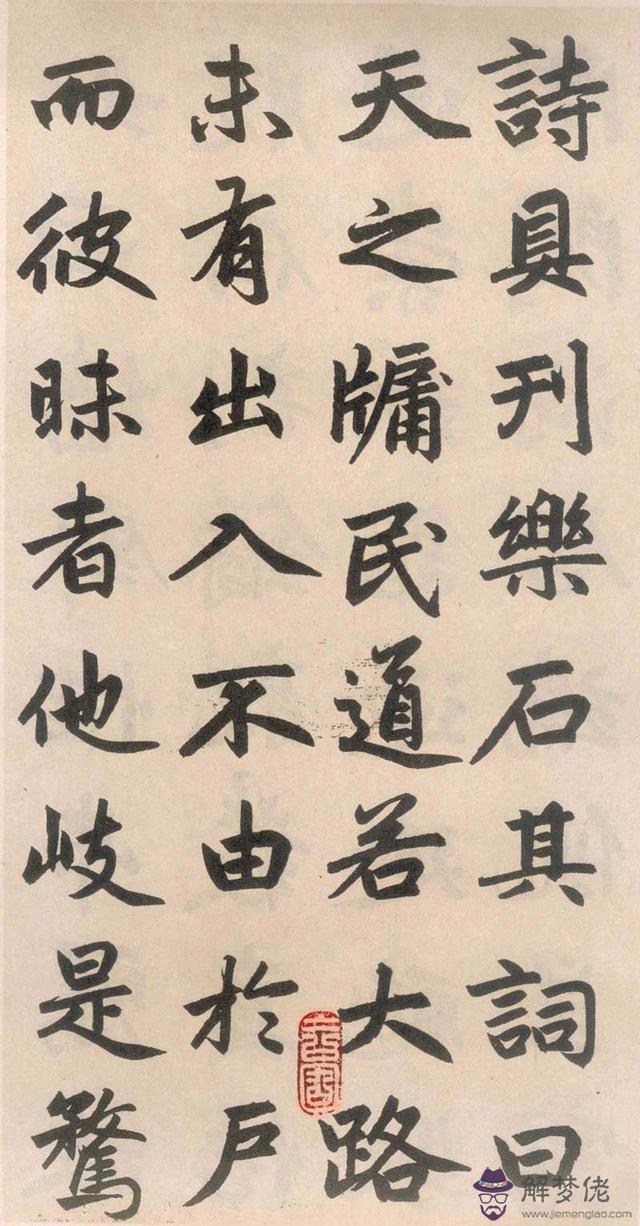 詩具刊樂石其詞曰
天之牖民道若大路
未有出入不由於戶
而彼昧者他岐是騖
解梦佬
www.jiemenglao.com